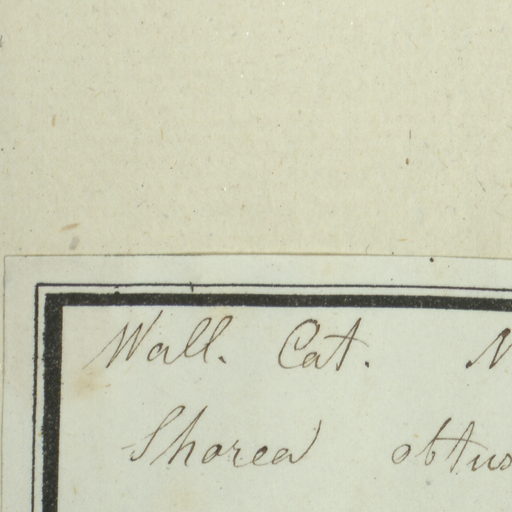 Wall. Cat. N
Shorea obtus